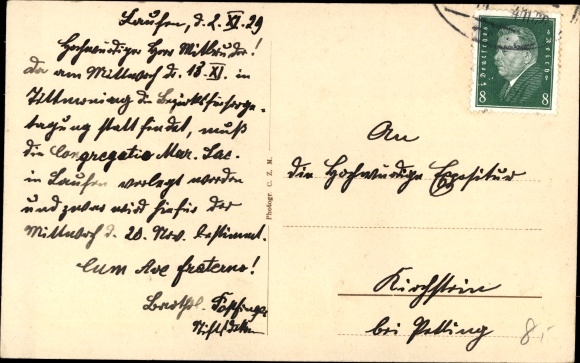 Laufen, d. 2. XI. 29
Hochwürdiger Herr Mitbruder!
Da am Mittwoch d. 13. XI. in
Tittmoning die Bezirksfürsorge-
tagung stattfindet, muß
die Congregatio Mar. Sac.
in Laufen verlegt werden
und zwar wird hiefür der
Mittwoch d. 20. Nov. bestimmt.
Cum Ave fraterno!
Barthl.
Photogr. C. Z. M.
Deutsches Reich
8 8
An
die Hochwürdige Expositur
Kirchstein
bei Petting
8,-